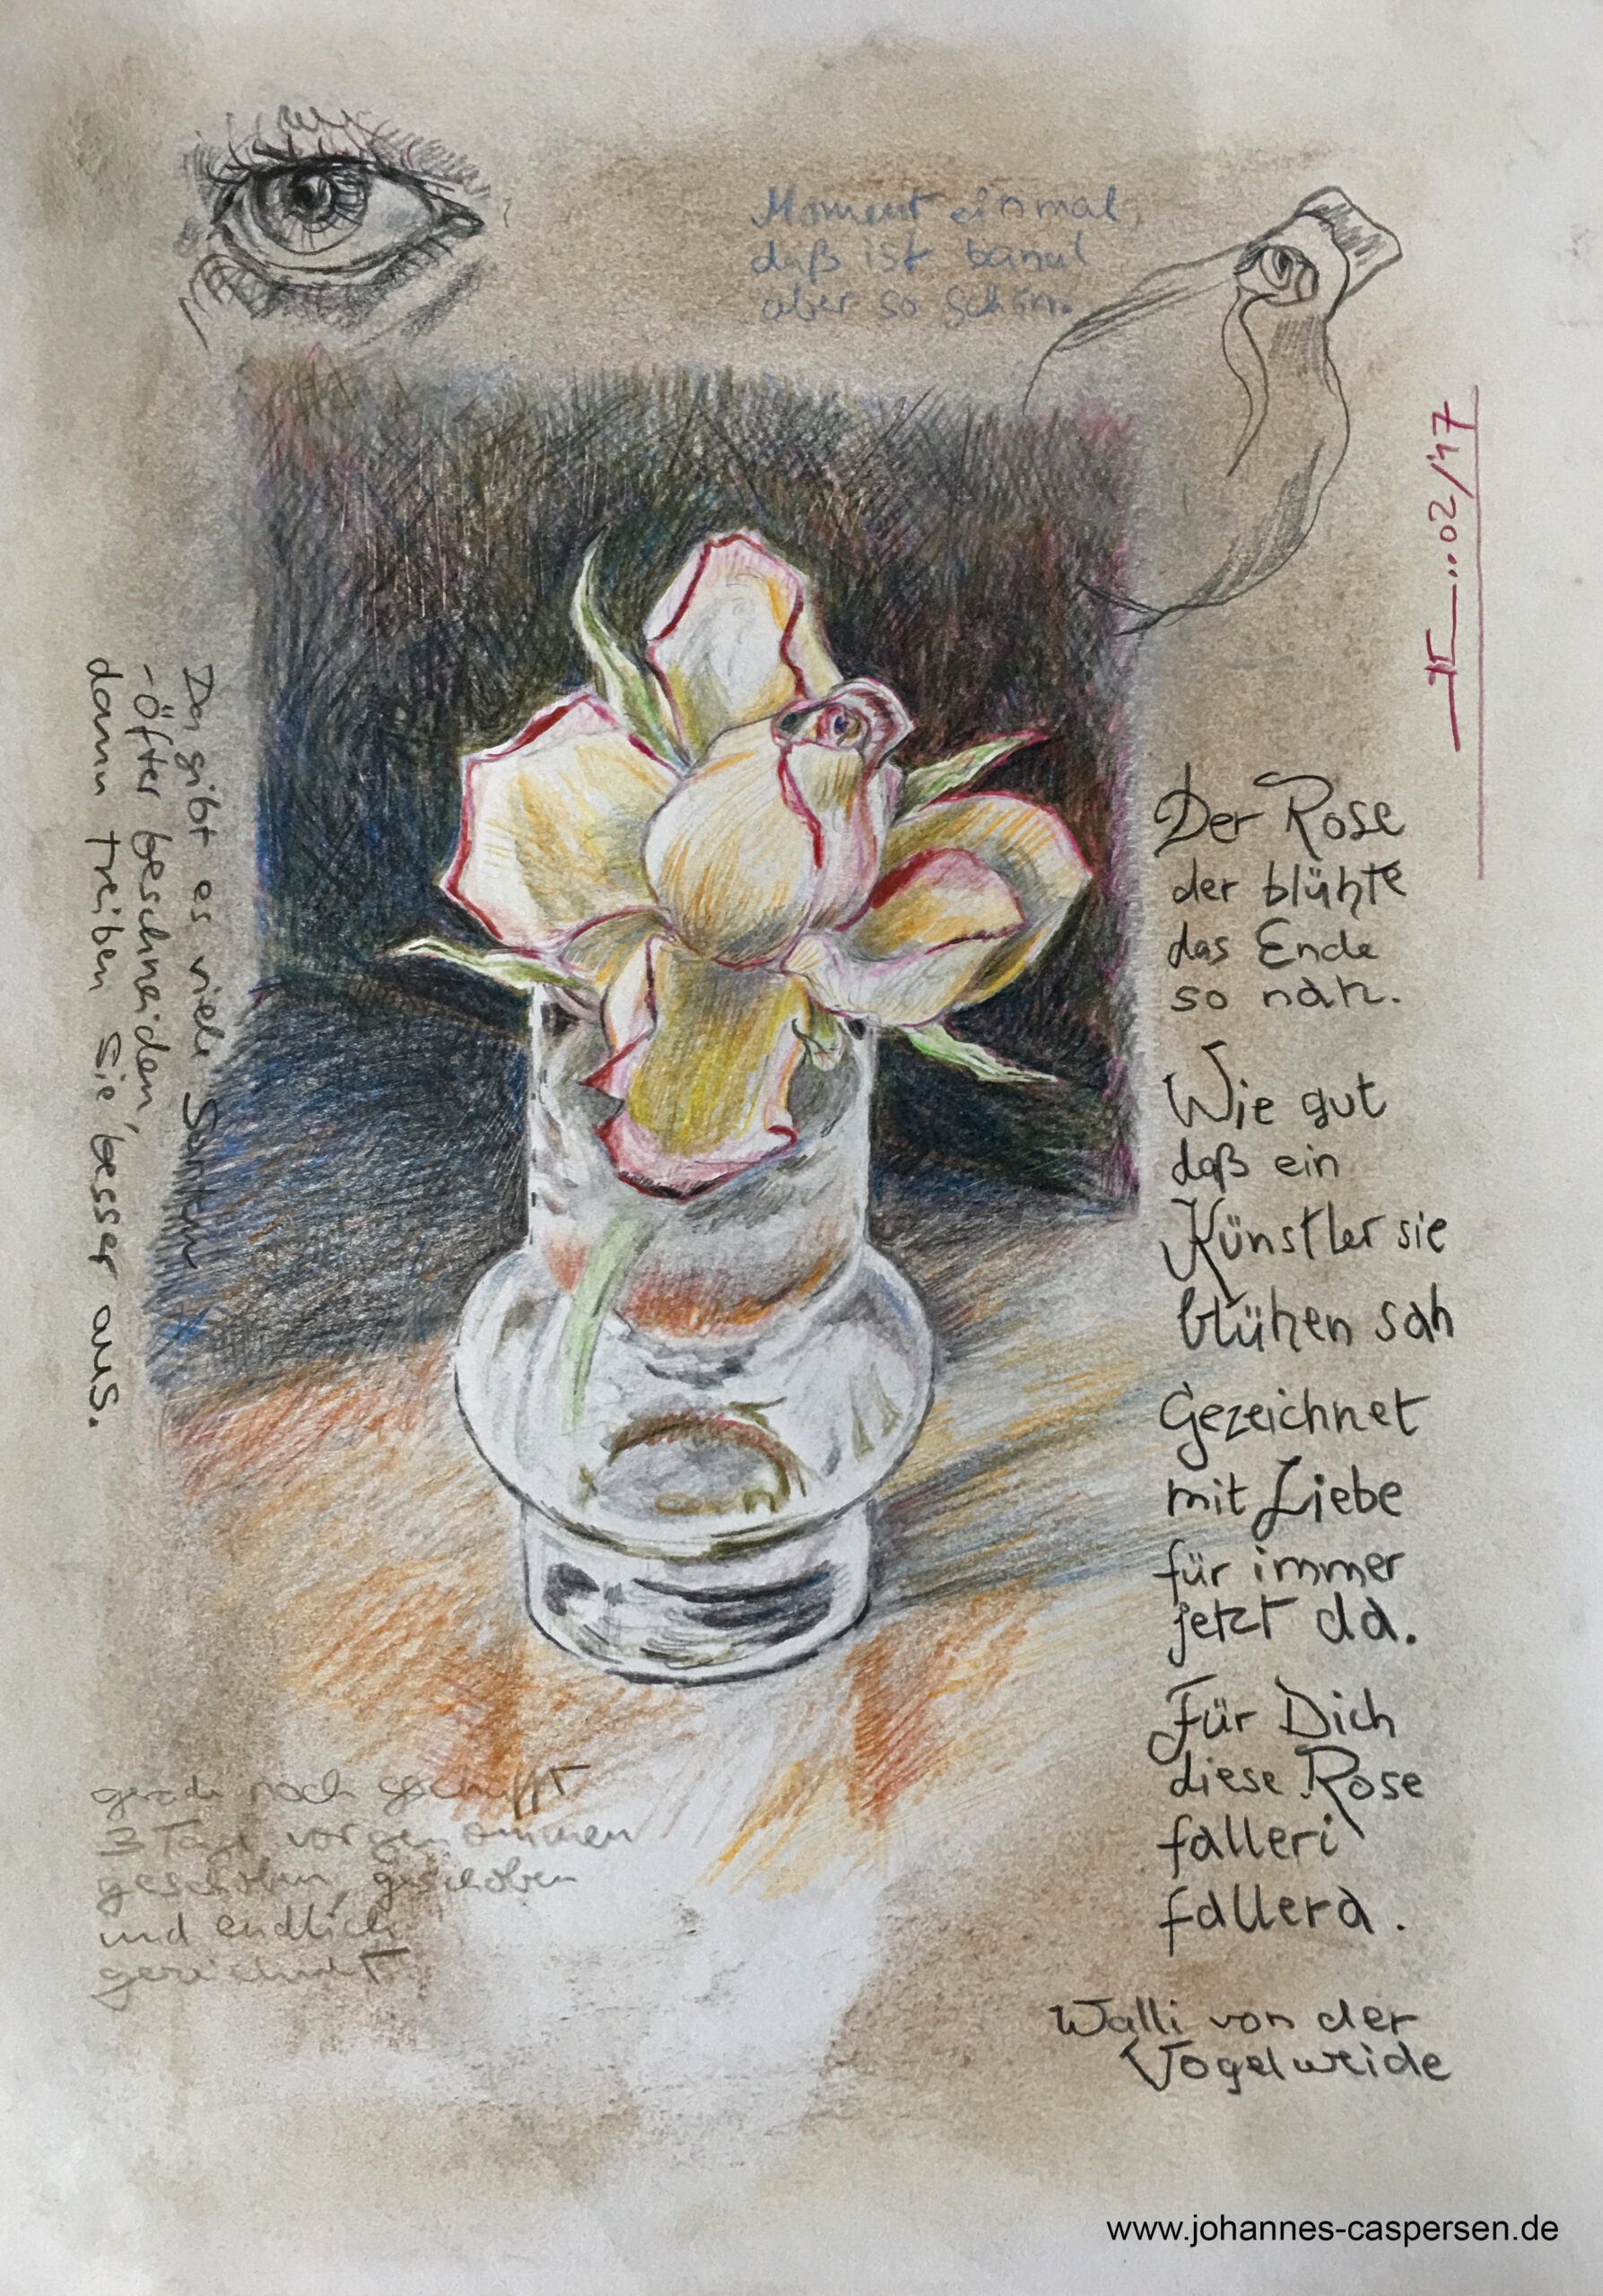 Moment einmal,
daß ist banal
aber so schön.
02/17
Der Rose
der blühte
das Ende
so nah.
Wie gut
daß ein
Künstler sie
blühen sah
Gezeichnet
mit Liebe
für immer
jetzt da.
Für Dich
diese Rose
falleri
fallera.
Walli von der
Vogelweide
Da gibt es viele Sorten
-Öfter beschneiden,
dann treiben sie besser aus.
gerade noch geschafft
3 Tage vorgenommen
geschoben, geschoben
und endlich
gezeichnet
www.johannes-caspersen.de